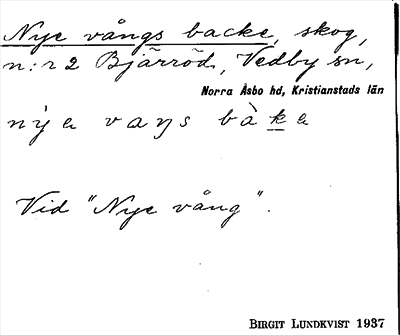 Nye vångs backe, skog,
n:r 2 Bjärröd, Vedby sn,
Norra Åsbo hd, Kristianstads län
Vid "Nye vång".
BIRGIT LUNDKVIST 1937